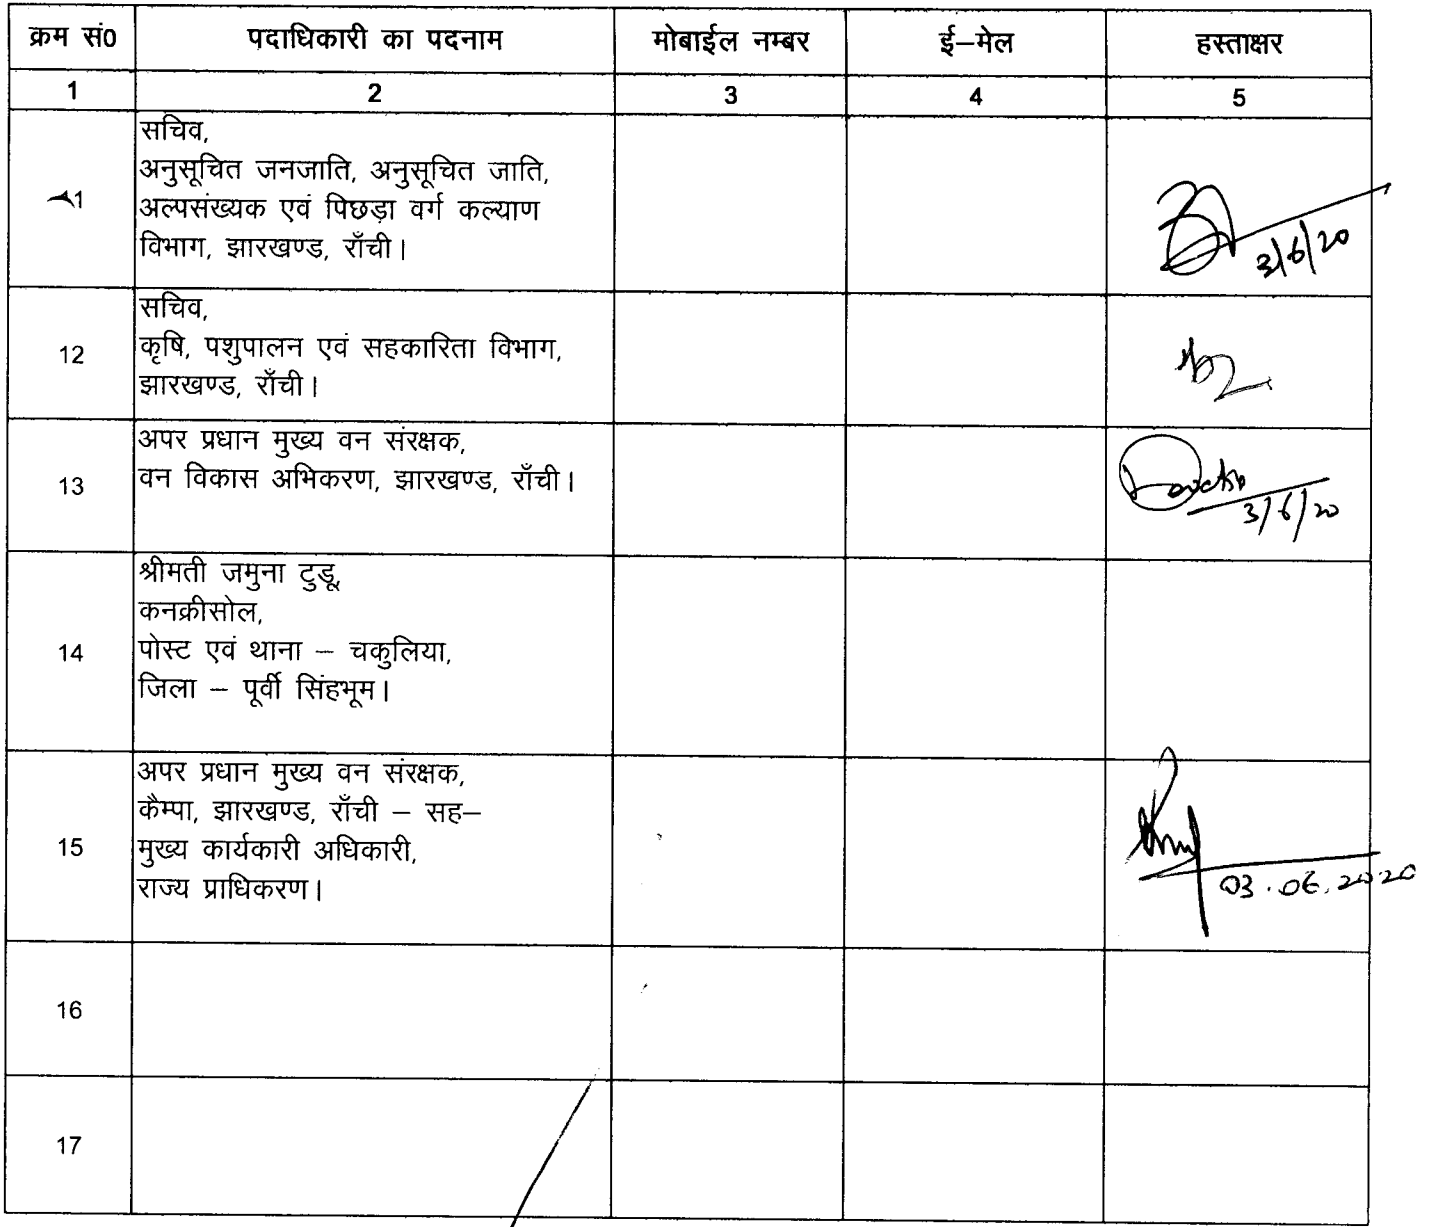 क्रम सं0 पदाधिकारी का पदनाम मोबाईल नम्बर ई–मेल हस्ताक्षर
1 2 3 4 5
सचिव,
अनुसूचित जनजाति, अनुसूचित जाति,
1 अल्पसंख्यक एवं पिछड़ा वर्ग कल्याण
विभाग, झारखण्ड, राँची।
3/6/20
सचिव,
12 कृषि, पशुपालन एवं सहकारिता विभाग,
झारखण्ड, राँची।
अपर प्रधान मुख्य वन संरक्षक,
13 वन विकास अभिकरण, झारखण्ड, राँची।
3/6/20
श्रीमती जमुना टुडू,
कनक्रीसोल,
14 पोस्ट एवं थाना – चकुलिया,
जिला – पूर्वी सिंहभूम।
अपर प्रधान मुख्य वन संरक्षक,
कैम्पा, झारखण्ड, राँची – सह–
15 मुख्य कार्यकारी अधिकारी,
राज्य प्राधिकरण।
03.06.2020
16
17